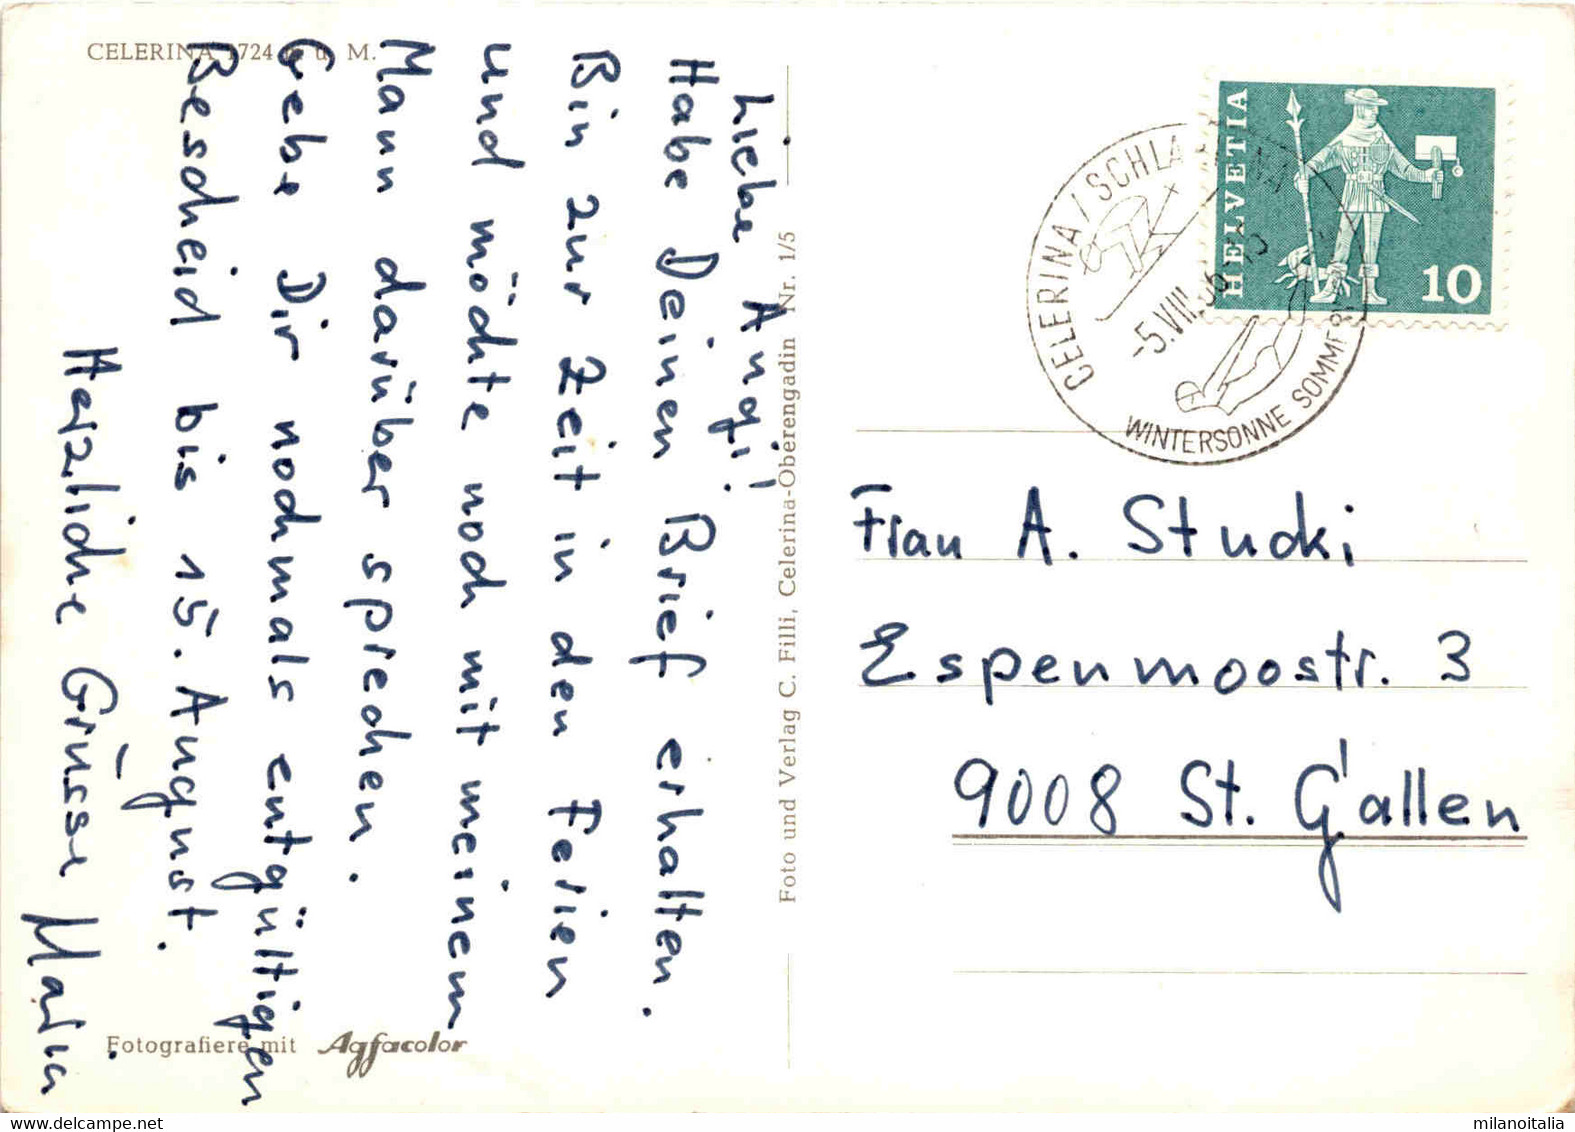 CELERINA 1724 m ü. M.
Liebe Angi!
Habe Deinen Brief erhalten.
Bin zur Zeit in den Ferien
und möchte noch mit meinem
Mann darüber sprechen.
Gebe Dir nochmals entgültigen
Bescheid bis 15. August.
Herzliche Grüsse Maria
Fotografiere mit Agfacolor
Foto und Verlag C. Filli, Celerina-Oberengadin Nr. 1/5
HELVETIA
10
CELERINA / SCHLA
-5.VIII.
WINTERSONNE SOMMER
Frau A. Studki
Espenmoostr. 3
9008 St. Gallen
milanoitalia